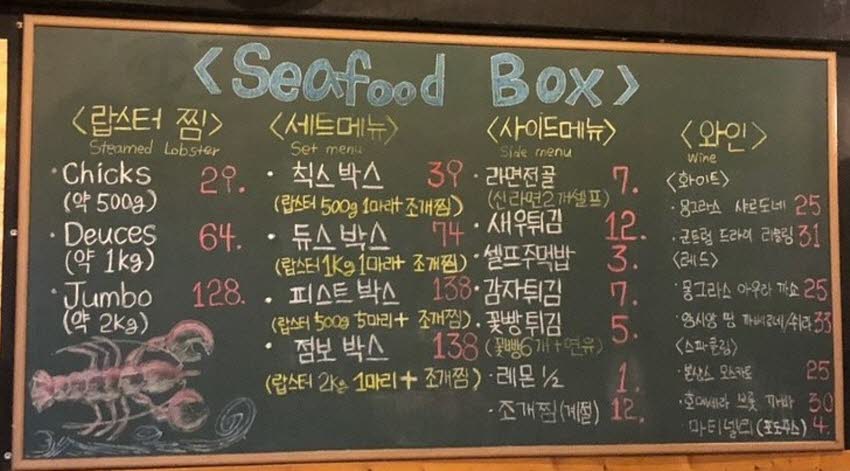 <Seafood Box>
<랍스터 찜>
Steamed Lobster
· Chicks 29.
(약 500g)
· Deuces 64.
(약 1kg)
· Jumbo 128.
(약 2kg)
<세트메뉴>
Set menu
· 칙스 박스 39
(랍스터 500g 1마리+ 조개찜)
· 듀스 박스 74
(랍스터 1kg 1마리+ 조개찜)
· 피스트 박스 138
(랍스터 500g 5마리+ 조개찜)
· 점보 박스 138
(랍스터 2kg 1마리+ 조개찜)
<사이드메뉴>
Side menu
· 라면전골 7.
(신라면2개셀프)
· 새우튀김 12.
· 셀프주먹밥 3.
· 감자튀김 7.
· 꽃빵튀김 5.
(꽃빵6개+연유)
· 레몬 ½ 1.
· 조개찜(계절) 12.
<와인>
Wine
<화이트>
· 몽그라스 샤르도네 25
· 군트럼 드라이 리슬링 31
<레드>
· 몽그라스 아우라 까쇼 25
33
<스파클링>
모스카토 25
브뤼 까바 30
마티넬리 (포도쥬스) 4.